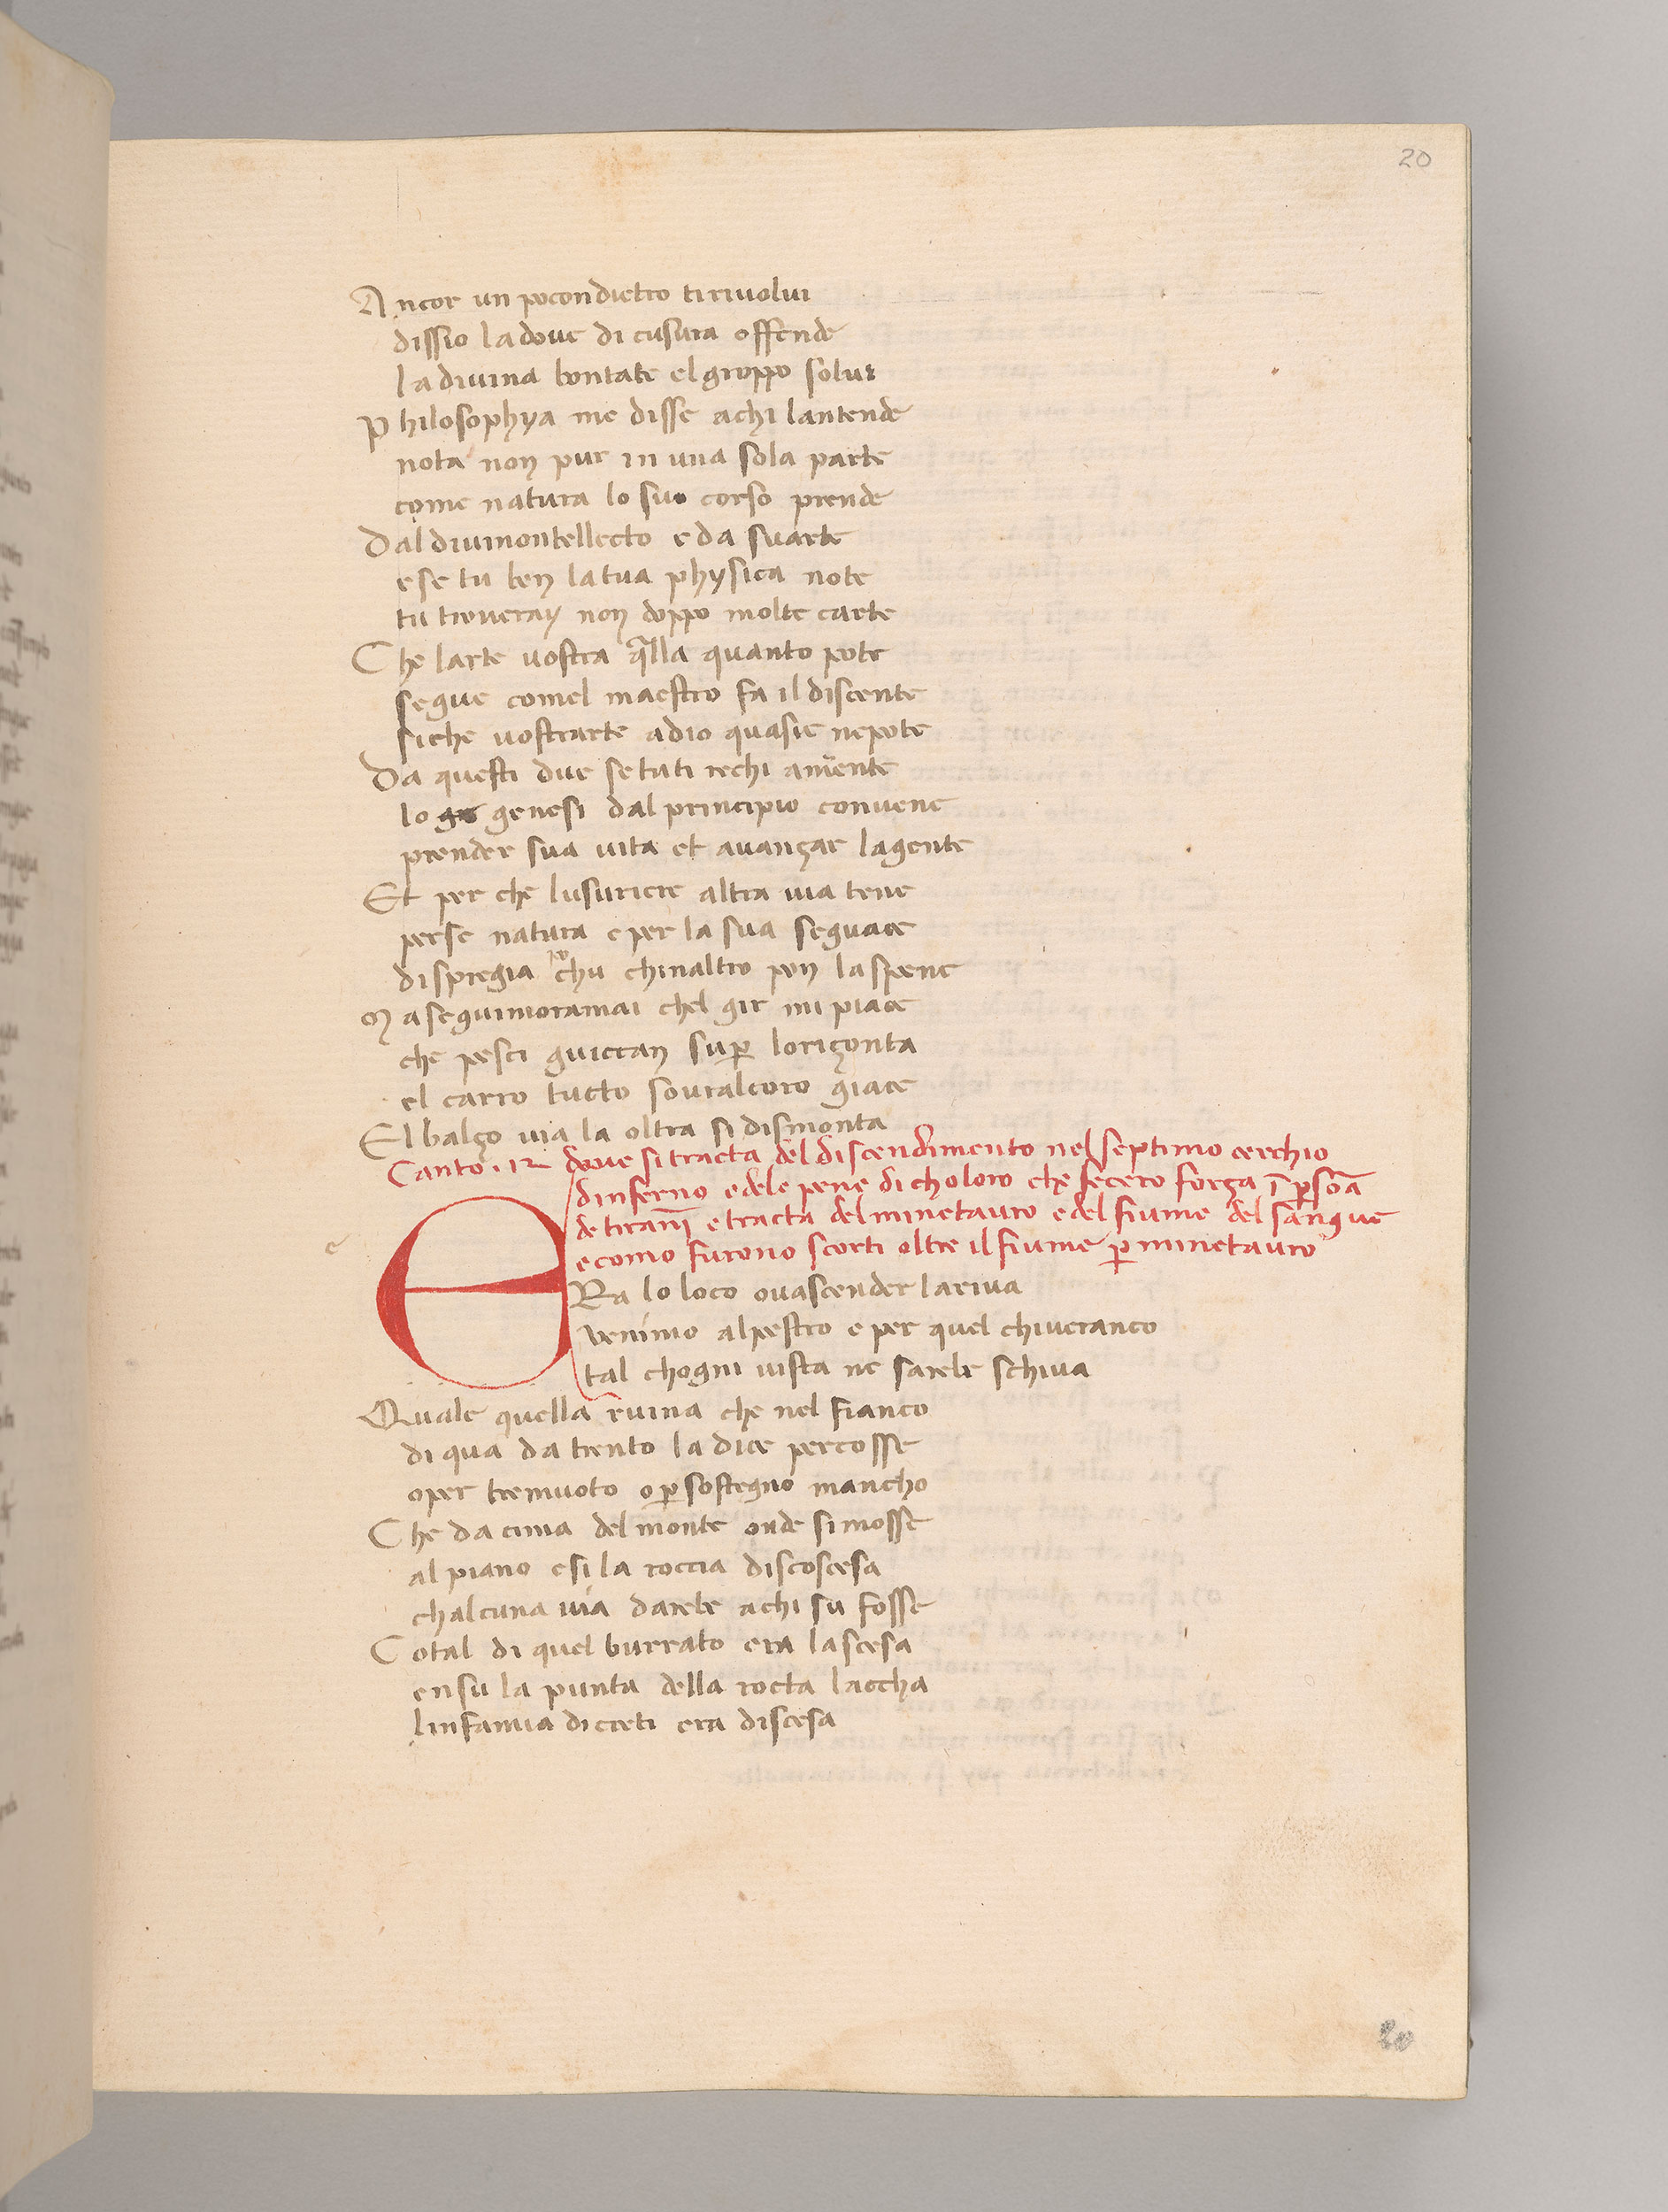 20
Ancor un pocondietro tirivolui
dissio ladoue di cusura offende
ladiuina bontate elgroppo solui
Philosophya me disse achi lantende
nota non pur in una sola parte
come natura lo suo corso prende
Dal diuinontellecto e da suarte
ese tu ben latua physica note
tu troueray non doppo molte carte
Che larte uostra q̃lla quanto pote
segue comel maestro fa il discente
siche uostrarte adio quasie nepote
Da questi due setuti rechi amente
lo genesi dal principio conuene
prender sua uita et auançar lagente
Et per che lusuriere altra uia tene
perse natura e per la sua seguace
dispregia chinaltro pon laspene
Ma seguimoramai chel gir mi piace
che pesci guiccan sup̱ loriçonta
el carro tucto souralcoro giace
El balço uia la oltra si dismonta
Canto .12 doue sitracta del discendimento nel septimo cerchio
dinferno edele pene dicholoro che fecero força ĩ p̱soã
de tirañi etracta del minetauro edel fiume del sangue
ecomo furono scorti oltre il fiume p̱ minetauro
e
ERa lo loco ouascender lariua
venimo alpestro e per quel chiueranco
tal chogni uista ne sarebe schiua
Quale quella ruina che nel fianco
di qua da trento ladice percosse
oper tremuoto op̱ sostegno mancho
Che da cima del monte onde simosse
alpiano esi la roccia discoscesa
chalcuna uia darebe achi su fosse
Cotal di quel burrato era lascesa
ensu la punta della rocta laccha
linfamia dicreti era discesa
20